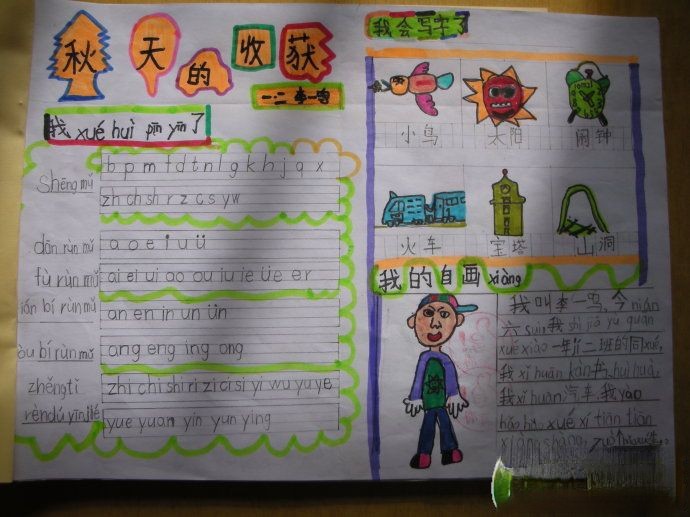 秋天的收获
一二 李一鸣
我 xué huì pīn yīn 了
Shēng mǔ
b p m f d t n l g k h j q x
zh ch sh r z c s y w
dān rùn mǔ
a o e i u ü
fù rùn mǔ
ai ei ui ao ou iu ie üe er
bí rùn mǔ
an en in un ün
bí rùn mǔ
ang eng ing ong
zhěng tǐ
zhi chi shi ri zi ci si yi wu yu ye
rèn dú yīn jié
yue yuan yin yun ying
我会写字了
小鸟
太阳
闹钟
火车
宝塔
山洞
我的自画 xiàng
我叫李一鸣,今 nián
六 suì,我 shì
xué xiào 一年 jí 二班的同 xué,
我 xǐ huān huì huà,
我 xǐ huān 汽车,我 yào
xué xí tiān tiān
xiàng shàng,